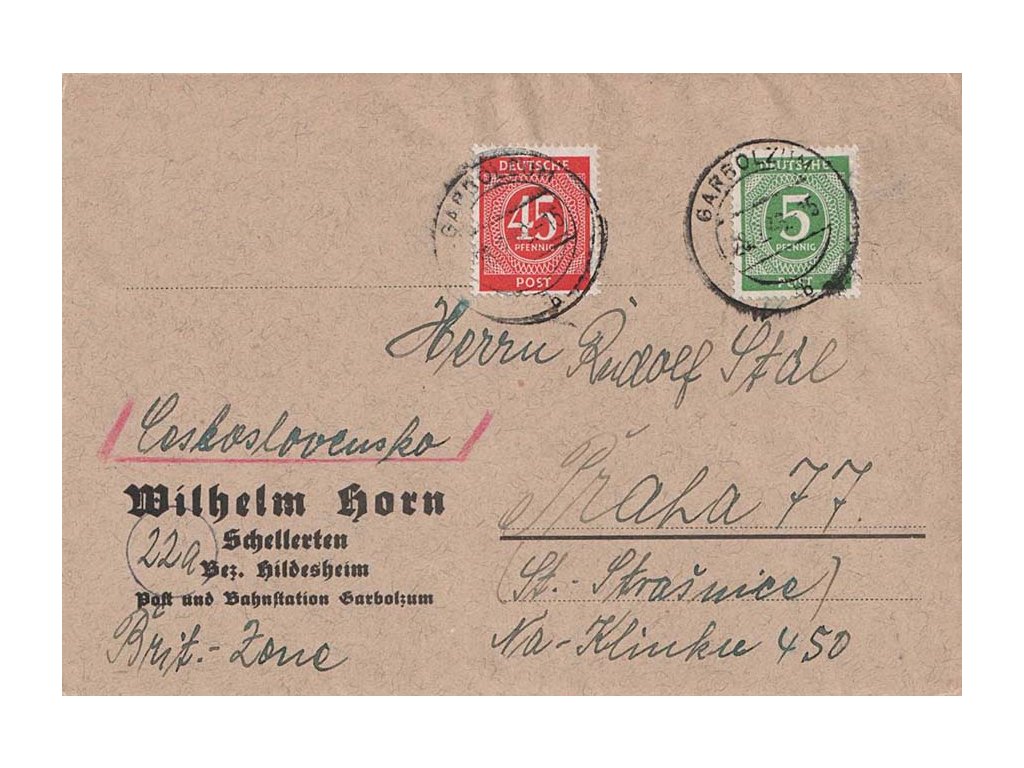 DEUTSCHE
45
PFENNIG
POST
GARBOLZUM
DEUTSCHE
5
PFENNIG
POST
GARBOLZUM
Herrn Rudolf Stál
Československo
Wilhelm Horn
Praha 77.
22a
Schellerten
Bez. Hildesheim
(St.- Strašnice)
Post und Bahnstation Garbolzum
Brit.- Zone
Na-Klinku 450